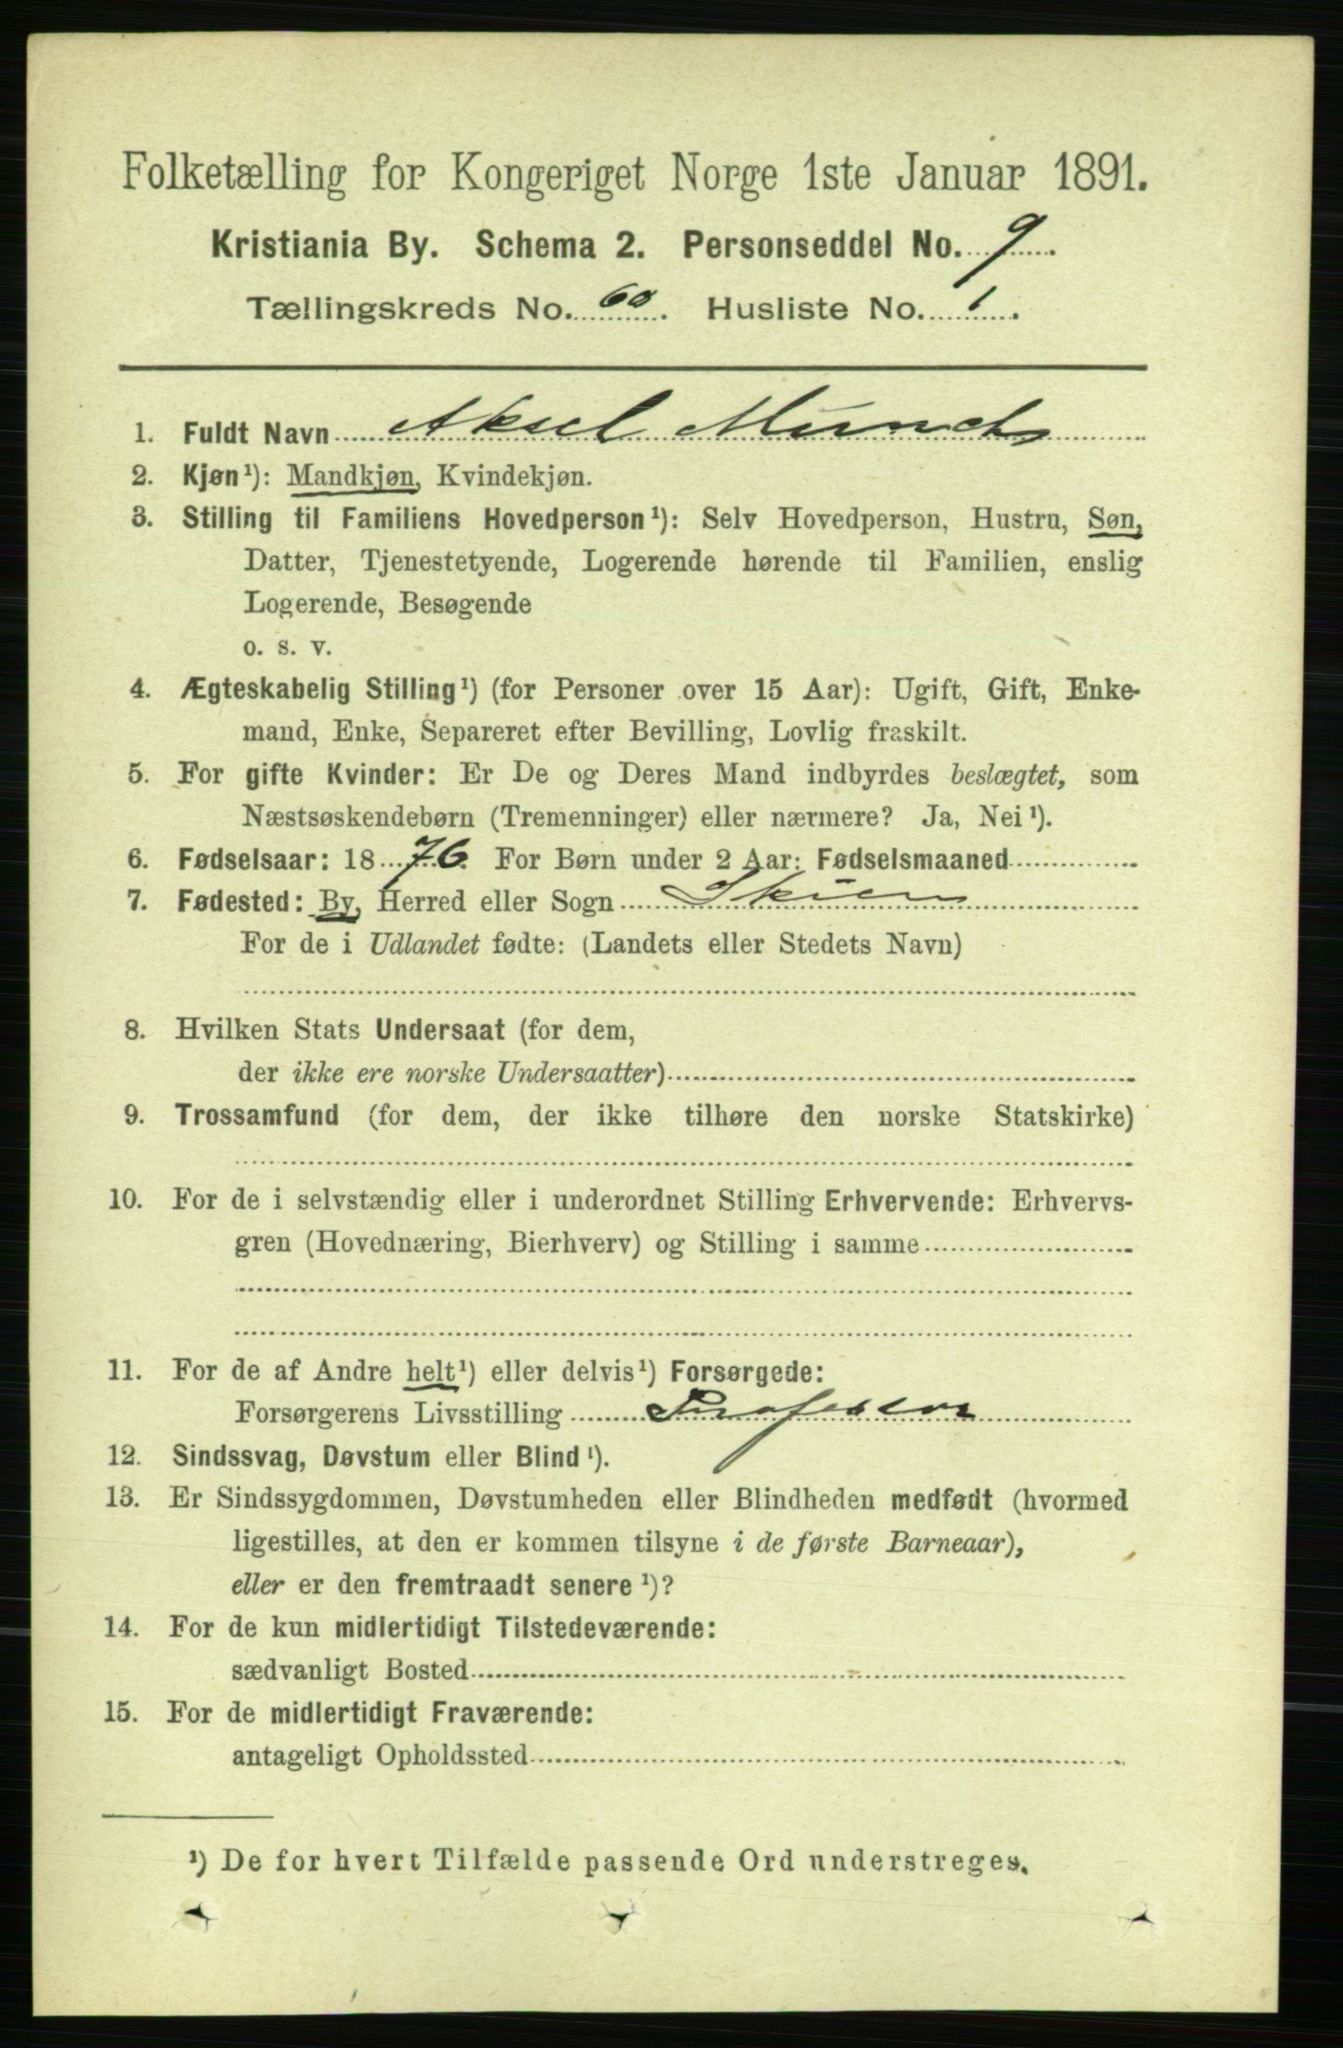 Folketælling for Kongeriget Norge 1ste Januar 1891.
Kristiania By. Schema 2. Personseddel No. 9
Tællingskreds No. 60. Husliste No. 1.
1. Fuldt Navn Aksel Munch
2. Kjøn¹): Mandkjøn, Kvindekjøn.
3. Stilling til Familiens Hovedperson¹): Selv Hovedperson, Hustru, Søn,
Datter, Tjenestetyende, Logerende hørende til Familien, enslig
Logerende, Besøgende
o. s. v.
4. Ægteskabelig Stilling¹) (for Personer over 15 Aar): Ugift, Gift, Enke-
mand, Enke, Separeret efter Bevilling, Lovlig fraskilt.
5. For gifte Kvinder: Er De og Deres Mand indbyrdes beslægtet, som
Næstsøskendebørn (Tremenninger) eller nærmere? Ja, Nei¹).
6. Fødselsaar: 1876. For Børn under 2 Aar: Fødselsmaaned
7. Fødested: By, Herred eller Sogn Skien
For de i Udlandet fødte: (Landets eller Stedets Navn)
8. Hvilken Stats Undersaat (for dem,
der ikke ere norske Undersaatter)
9. Trossamfund (for dem, der ikke tilhøre den norske Statskirke)
10. For de i selvstændig eller i underordnet Stilling Erhvervende: Erhvervs-
gren (Hovednæring, Bierhverv) og Stilling i samme
11. For de af Andre helt¹) eller delvis¹) Forsørgede:
Forsørgerens Livsstilling Professor
12. Sindssvag, Døvstum eller Blind¹).
13. Er Sindssygdommen, Døvstumheden eller Blindheden medfødt (hvormed
ligestilles, at den er kommen tilsyne i de første Barneaar),
eller er den fremtraadt senere¹)?
14. For de kun midlertidigt Tilstedeværende:
sædvanligt Bosted
15. For de midlertidigt Fraværende:
antageligt Opholdssted
¹) De for hvert Tilfælde passende Ord understreges.